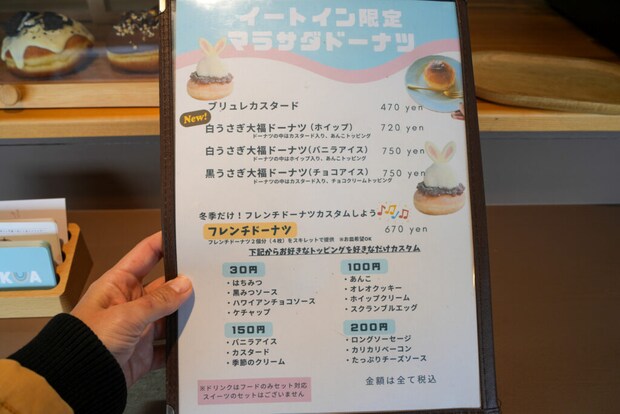 イートイン限定
マラサダドーナツ
ブリュレカスタード 470 yen
New!
白うさぎ大福ドーナツ(ホイップ) 720 yen
ドーナツの中はカスタード入り、あんこトッピング
白うさぎ大福ドーナツ(バニラアイス) 750 yen
ドーナツの中はホイップ入り、あんこトッピング
黒うさぎ大福ドーナツ(チョコアイス) 750 yen
ドーナツの中はカスタード入り、チョコクリームトッピング
冬季だけ!フレンチドーナツカスタムしよう
フレンチドーナツ 670 yen
フレンチドーナツ2個分(4枚)をスキレットで提供 ※お皿希望OK
下記からお好きなトッピングを好きなだけカスタム
30円
・はちみつ
・黒みつソース
・ハワイアンチョコソース
・ケチャップ
100円
・あんこ
・オレオクッキー
・ホイップクリーム
・スクランブルエッグ
150円
・バニラアイス
・カスタード
・季節のクリーム
200円
・ロングソーセージ
・カリカリベーコン
・たっぷりチーズソース
※ドリンクはフードのみセット対応
スイーツのセットはございません
金額は全て税込